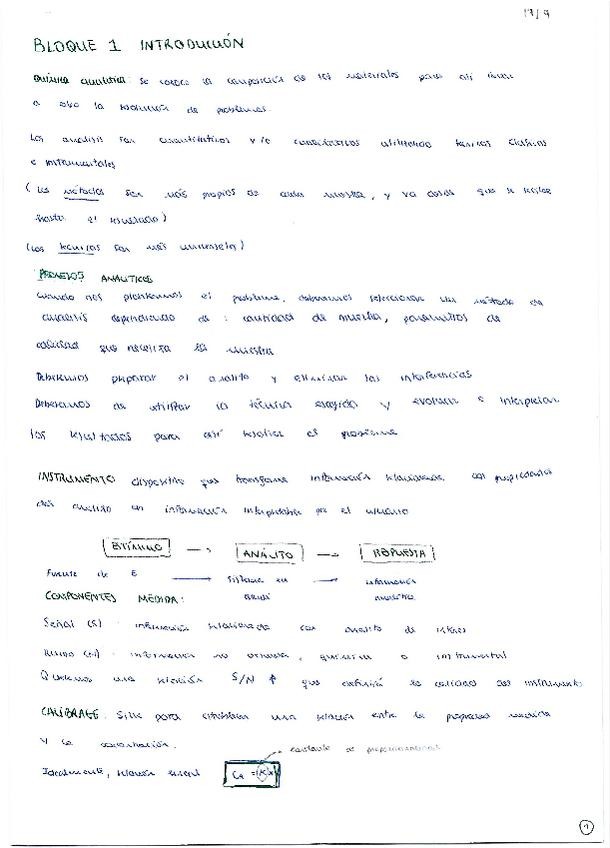 17/9
BLOQUE 1 INTRODUCCIÓN
QUÍMICA ANALÍTICA: se conoce la composición de los materiales para así llevar
a cabo la resolución de problemas.
Los análisis son cuantitativos y/o cualitativos utilizando técnicas clásicas
e instrumentales
(Los métodos son más propios de cada muestra, y va desde que se recibe
hasta el resultado)
(Los técnicas son más universales)
PROCESOS ANALÍTICOS
Cuando nos planteamos el problema, deberemos seleccionar un método de
análisis dependiendo de: cantidad de muestra, parámetros de
calidad que necesita la muestra
Deberemos preparar el analito y eliminar las interferencias
Deberemos de utilizar la técnica escogida y evaluar e interpretar
los resultados para así resolver el problema
INSTRUMENTO dispositivo que transforma información relacionada con propiedades
del analito en información interpretable por el usuario
ESTÍMULO → ANÁLITO → RESPUESTA
Fuente de E → sistema en → información
COMPONENTES MEDIDA: analítica
Señal (S): información relacionada con analito de interés
Ruido (N): información no deseada, química o instrumental
Queremos una relación S/N ↑ que definirá la calidad del instrumento
CALIBRADO: Sirve para establecer una relación entre la propiedad medida
y la concentración.
constante de proporcionalidad
Idealmente, relación lineal
1